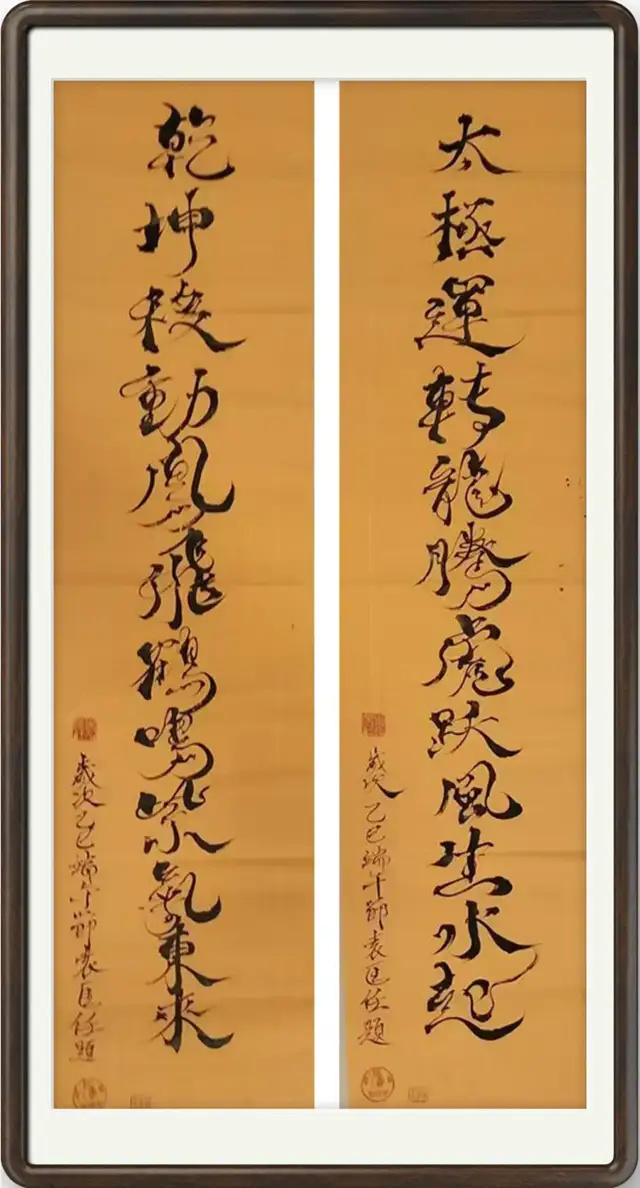 太極運轉龍騰虎跃風生水起
歲次乙巳端午節袁匡任題
乾坤梭動鳳飛鶴鳴紫氣東來
歲次乙巳端午節袁匡任題